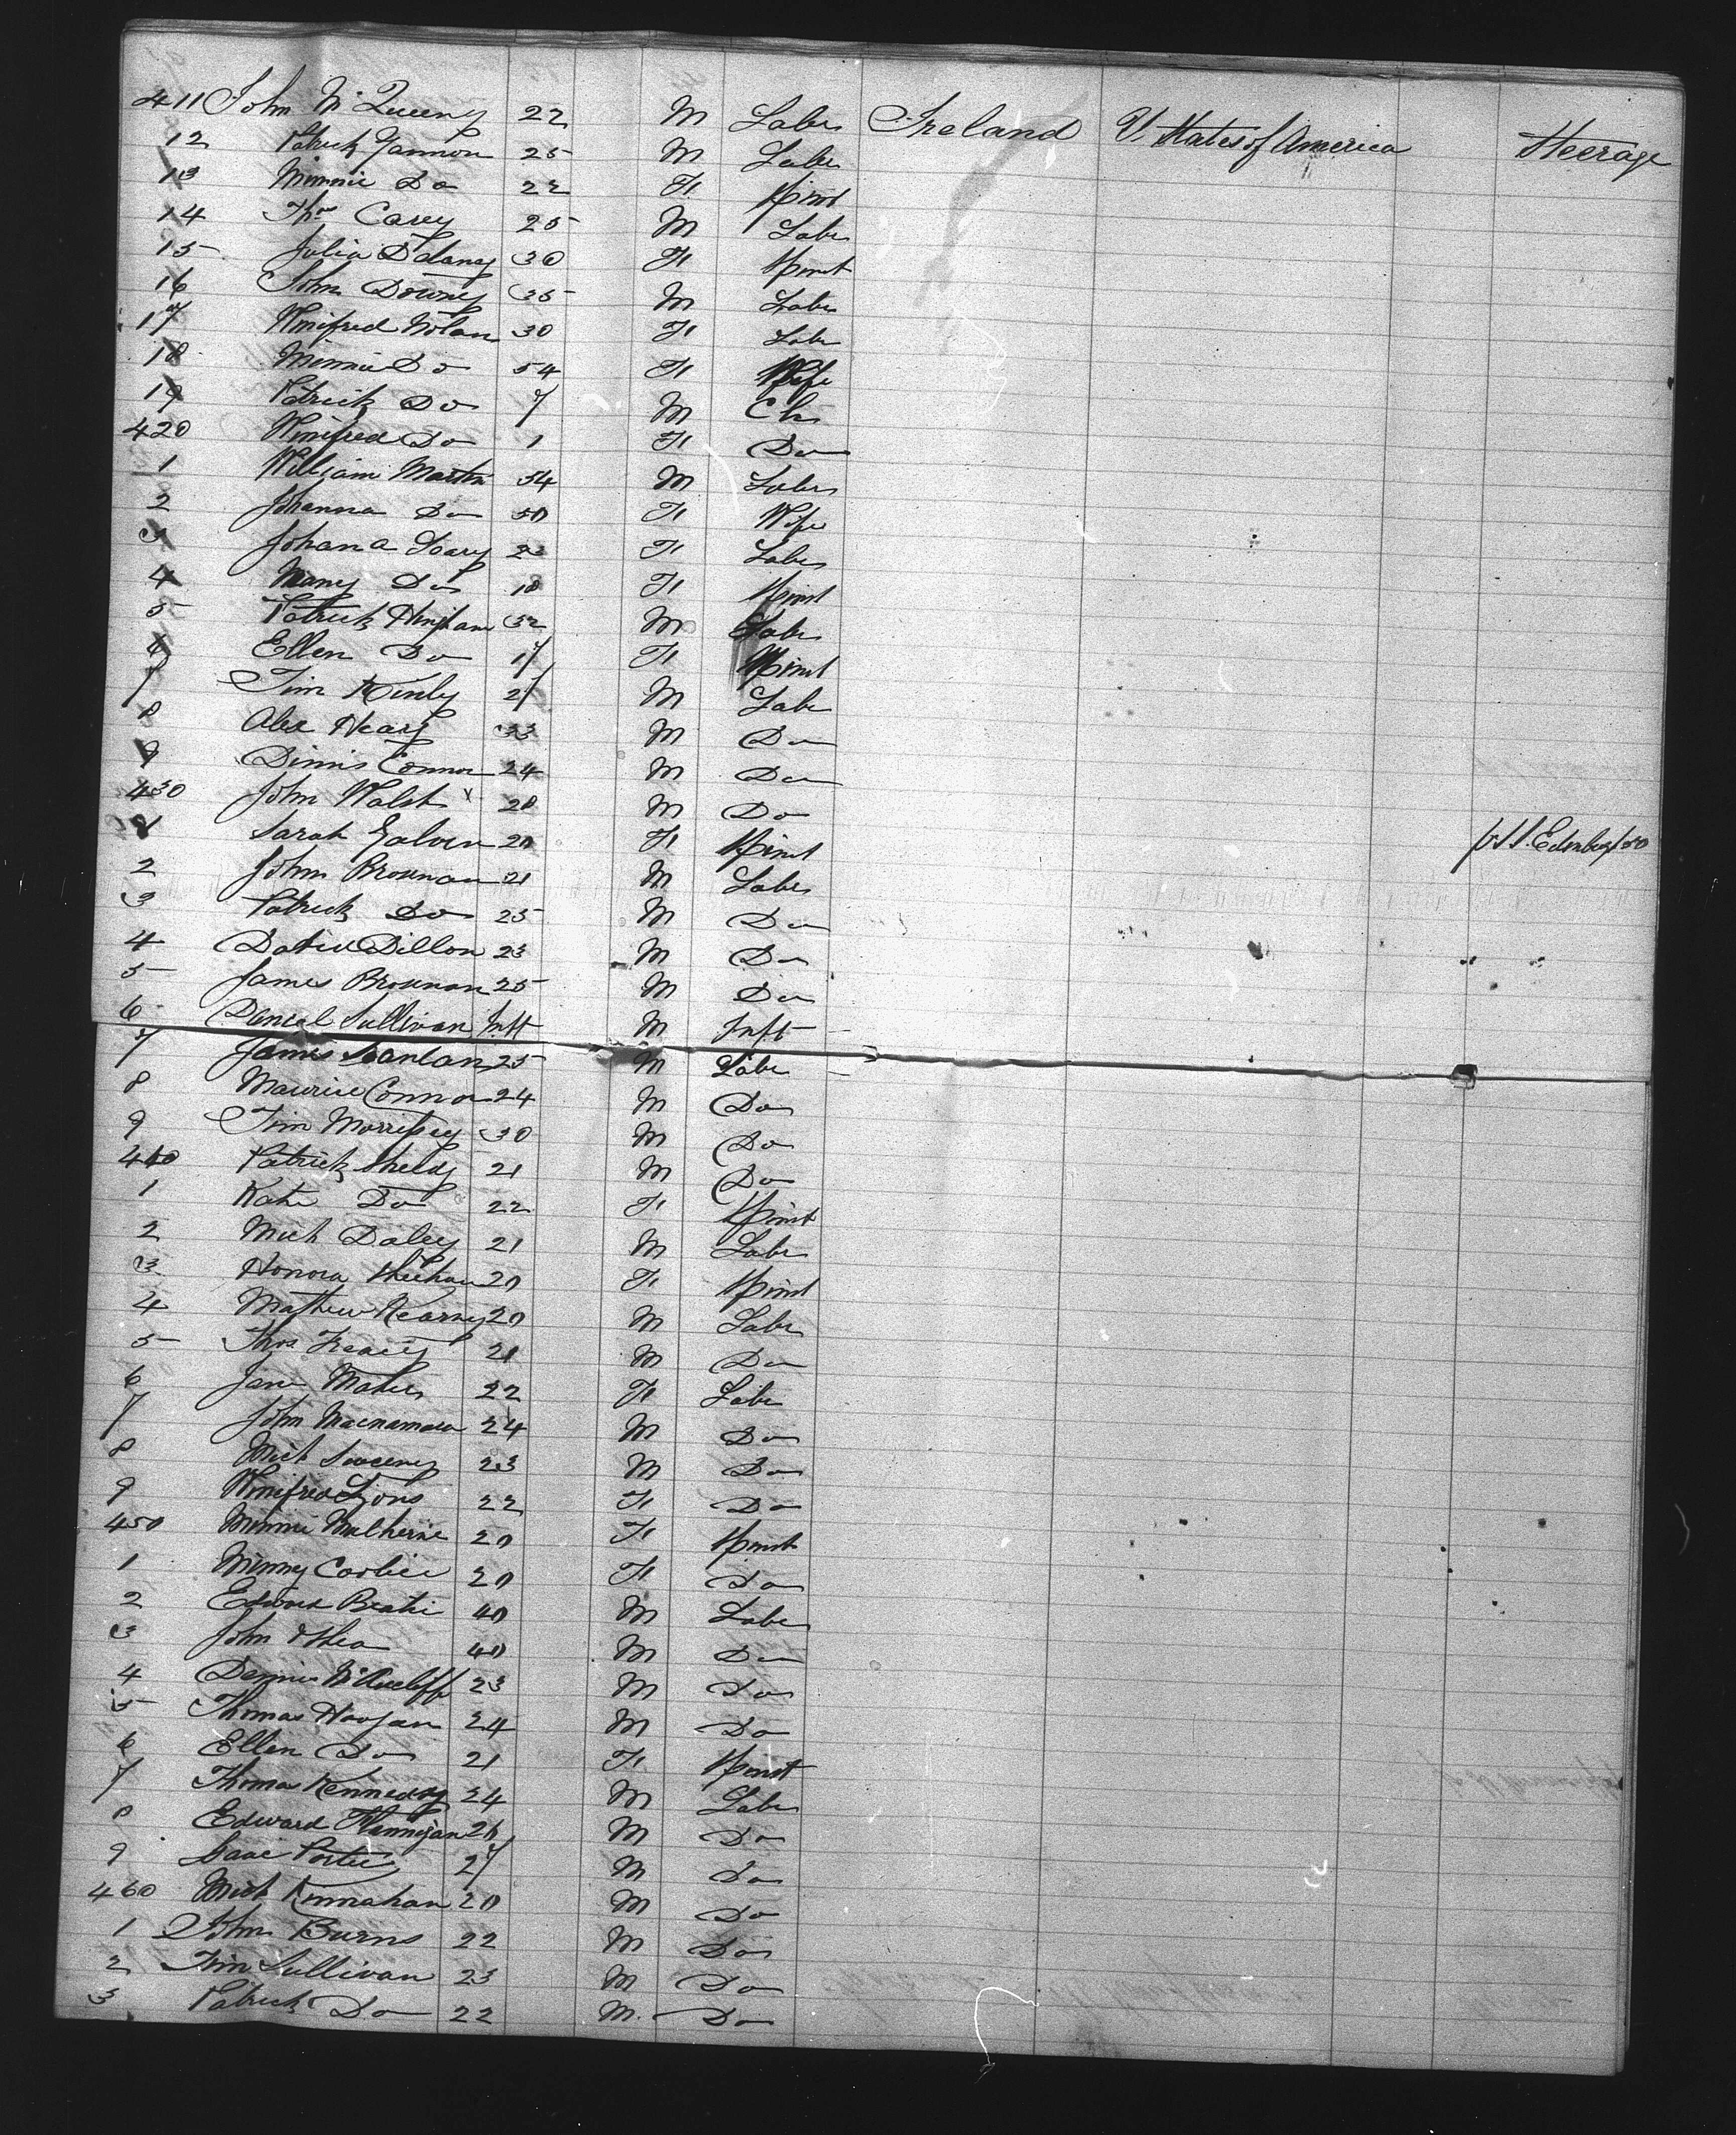 411 John McQueeny 22 M Labr Ireland U. States of America Steerage
12 Patrick Gannon 25 M Labr
13 Minnie Do 22 F Spinst
14 Thos Carey 25 M Labr
15 Julia Delaney 30 F Spinst
16 John Downey 35 M Labr
17 Winifred Nolan 30 F Labr
18 Minnie Do 54 F Wife
19 Patrick Do 7 M Ch
420 Winifred Do 1 F Do
1 William Martin 54 M Labr
2 Johanna Do 50 F Wife
3 Johana Leary 23 F Labr
4 Mary Do 18 F Spinst
5 Patrick 32 M Labr
6 Ellen Do 17 F Spinst
7 Tim 27 M Labr
8 Alex Neary 33 M Do
9 Dinnis Connor 24 M Do
430 John Walsh 20 M Do
1 Sarah Galvin 20 F Spinst
2 John Brosnan 21 M Labr
3 Patrick Do 25 M Do
4 Dillon 23 M Do
5 James Brosnan 25 M Do
6 Daniel Sullivan Inft M Inft
7 James Scanlan 25 M Labr
8 Maurice Connor 24 M Do
9 Tim Morrissey 30 M Do
440 Patrick Sheedy 21 M Do
1 Kate Do 22 F Spinst
2 Mich Daley 21 M Labr
3 Honora Sheehan 20 F Spinst
4 Mathew Kearney 20 M Labr
5 Thos 21 M Do
6 Jane Maher 22 F Labr
7 John Macnamara 24 M Do
8 Mich Sweeney 23 M Do
9 Winifred Lyons 22 F Do
450 Minnie Mulherin 20 F Spinst
1 Minny 20 F Do
2 Edward 40 M Labr
3 John Shea 40 M Do
4 Dennis McAuliffe 23 M Do
5 Thomas Hoogan 24 M Do
6 Ellen Do 21 F Spinst
7 Thomas Kennedy 24 M Labr
8 Edward Flannigan 26 M Do
9 27 M Do
460 Mich Kinnahan 20 M Do
1 John Burns 22 M Do
2 Tim Sullivan 23 M Do
3 Patrick Do 22 M. Do